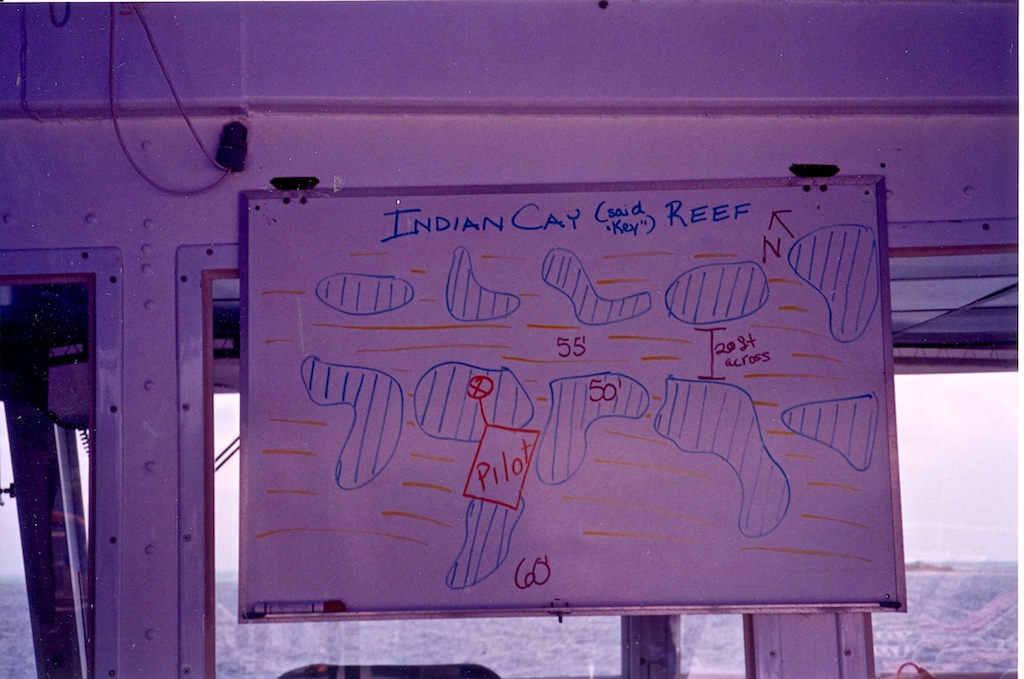 INDIAN CAY (said "Key") REEF
N
55'
20 ft across
50'
Pilot
60'